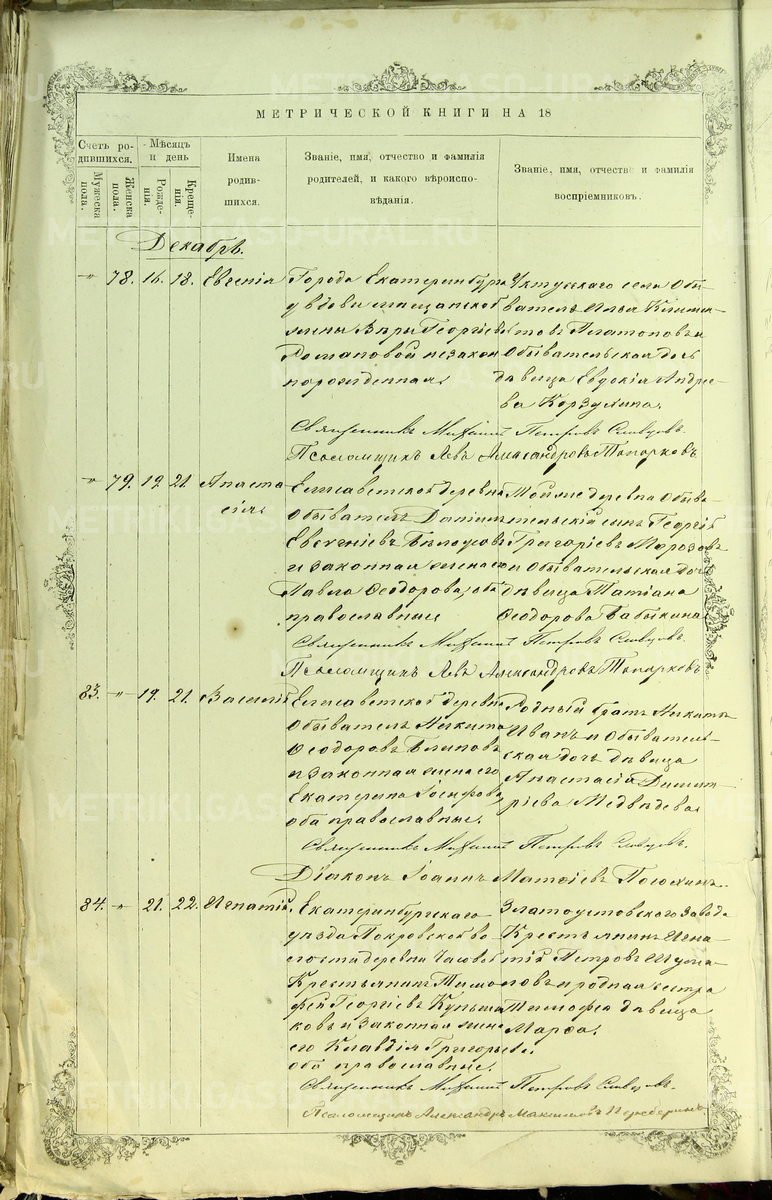 МЕТРИЧЕСКОЙ КНИГИ НА 18
Счетъ ро-
дившихся.
Мужеска
пола.
Женска
пола.
Мѣсяцъ
и день
Рожде-
нія.
Креще-
нія.
Имена
родив-
шихся.
Званіе, имя, отчество и фамилія
родителей, и какого вѣроиспо-
вѣданія.
Званіе, имя, отчество и фамилія
воспріемниковъ.
Декабрь.
" 78. 16. 18. Евгенія
Города Екатеринбурга
у вдовы мѣщанской
жены Вѣры Георгіев
Романовой незакон
норожденная
Уктусскаго села Обы
ватель Илья
Платоновъ и
Обывательская дочь
дѣвица Евдокія Андре
ва Корзухина.
Священникъ Михаилъ Петровъ Словцовъ.
Псаломщикъ Левъ Александровъ Топорковъ
" 79. 19. 21. Анаста
сія
Елисаветской деревни
Обыватель Даніилъ
Евгеніевъ Бѣлоусов
и законная жена его
Павла Ѳеодорова, оба
православные
Той же деревни Обыва
тельскій сынъ Георгій
Григоріевъ Морозовъ
и Обывательская дочь
дѣвица Татіана
Ѳеодорова Бабыкина
Священникъ Михаилъ Петровъ Словцовъ.
Псаломщикъ Левъ Александровъ Топорковъ
83. " 19. 21. Василій
Елисаветской деревни
Обыватель Никита
Ѳеодоровъ Блиновъ
и законная жена его
Екатерина Іосифова,
оба православные.
Родный братъ Никиты
Иванъ и Обыватель
ская дочь дѣвица
Анастасія Димит
ріева Медвѣдева
Священникъ Михаилъ Петровъ Словцовъ.
Діаконъ Іоаннъ Матѳіевъ
84. " 21. 22. Игнатій.
Екатеринбургскаго
уѣзда Покровской во
лости деревни Часовой
Крестьянинъ Тимо
фей Георгіевъ
ковъ и законная жена
его Клавдія Григорьева.
оба православные.
Златоустовскаго завода
Крестьянинъ Игна
тій Петровъ
и родная сестра
Тимофея дѣвица
Марѳа.
Священникъ Михаилъ Петровъ Словцовъ.
Псаломщикъ Александръ Максимовъ